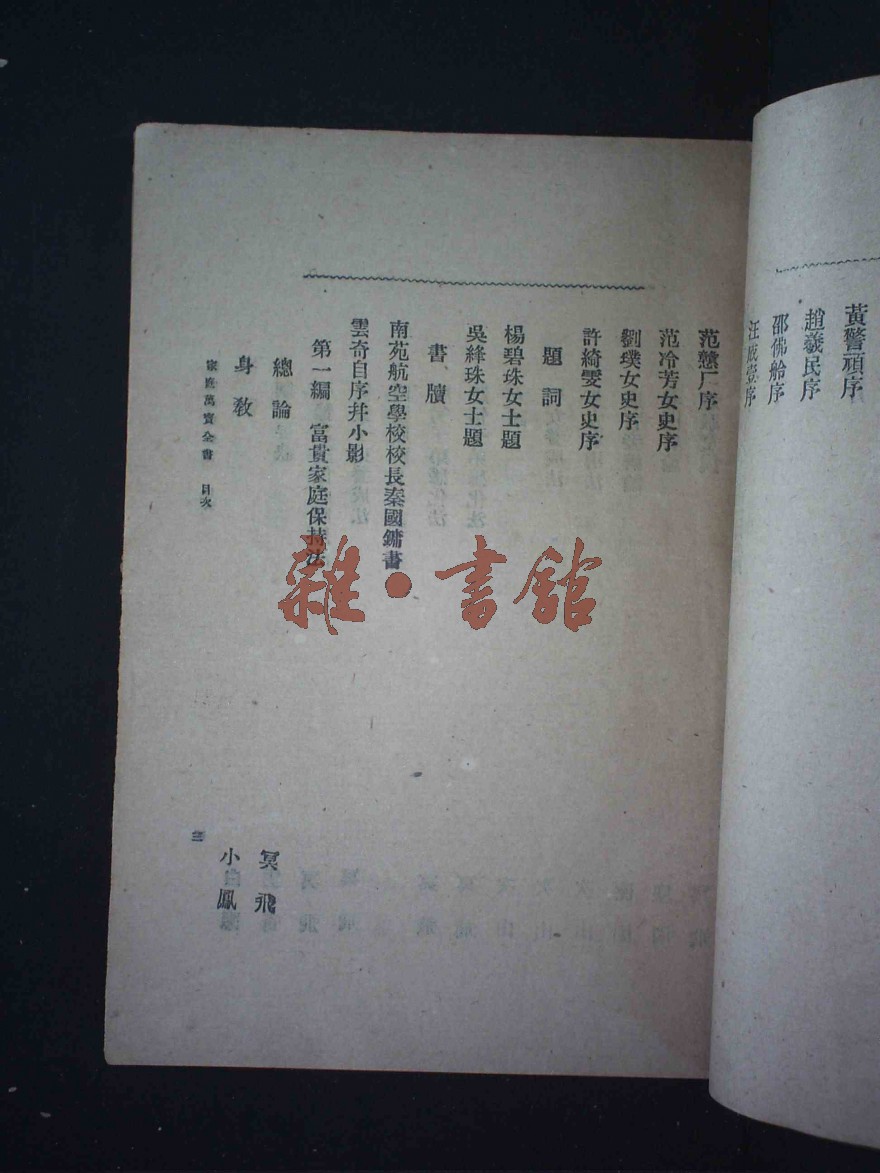 黃警頑序
趙羲民序
邵佛舲序
范冷芳女史序
劉璞女史序
許綺雯女史序
題詞
楊碧珠女士題
吳絳珠女士題
書牘
南苑航空學校校長秦國鏞書
雲奇自序幷小影
第一編 富貴家庭保持法
總論 冥飛
身教 小鳳
家庭萬寶全書 目次 三
雜·書館